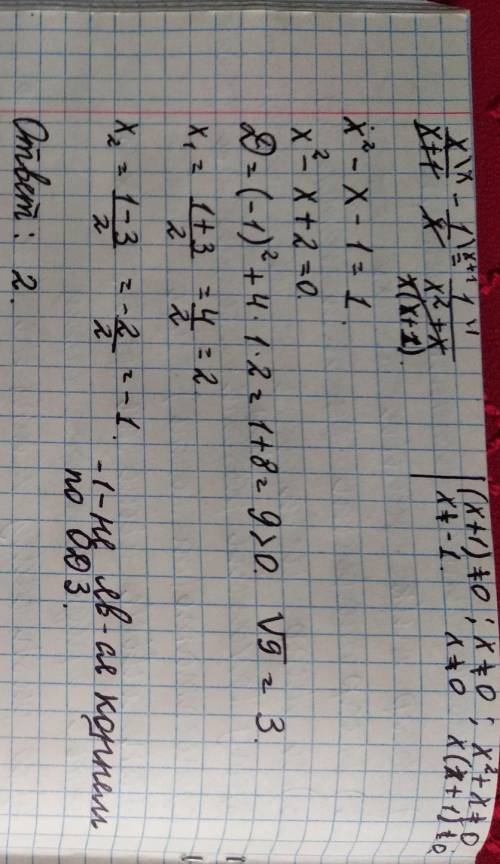 x\x/x+1 - 1\x+1/x = 1\1/x²+x | (x+1)≠0; x≠0; x²+x≠0
x(x+1) x≠-1. x≠0 x(x+1)≠0
x² - x - 1 = 1.
x² - x + 2 = 0.
D = (-1)² + 4·1·2 = 1+8 = 9 > 0. √9 = 3.
x₁ = 1+3/2 = 4/2 = 2.
x₂ = 1-3/2 = -2/2 = -1. -1 - не яв-ая корнем
по ОДЗ.
Ответ: 2.